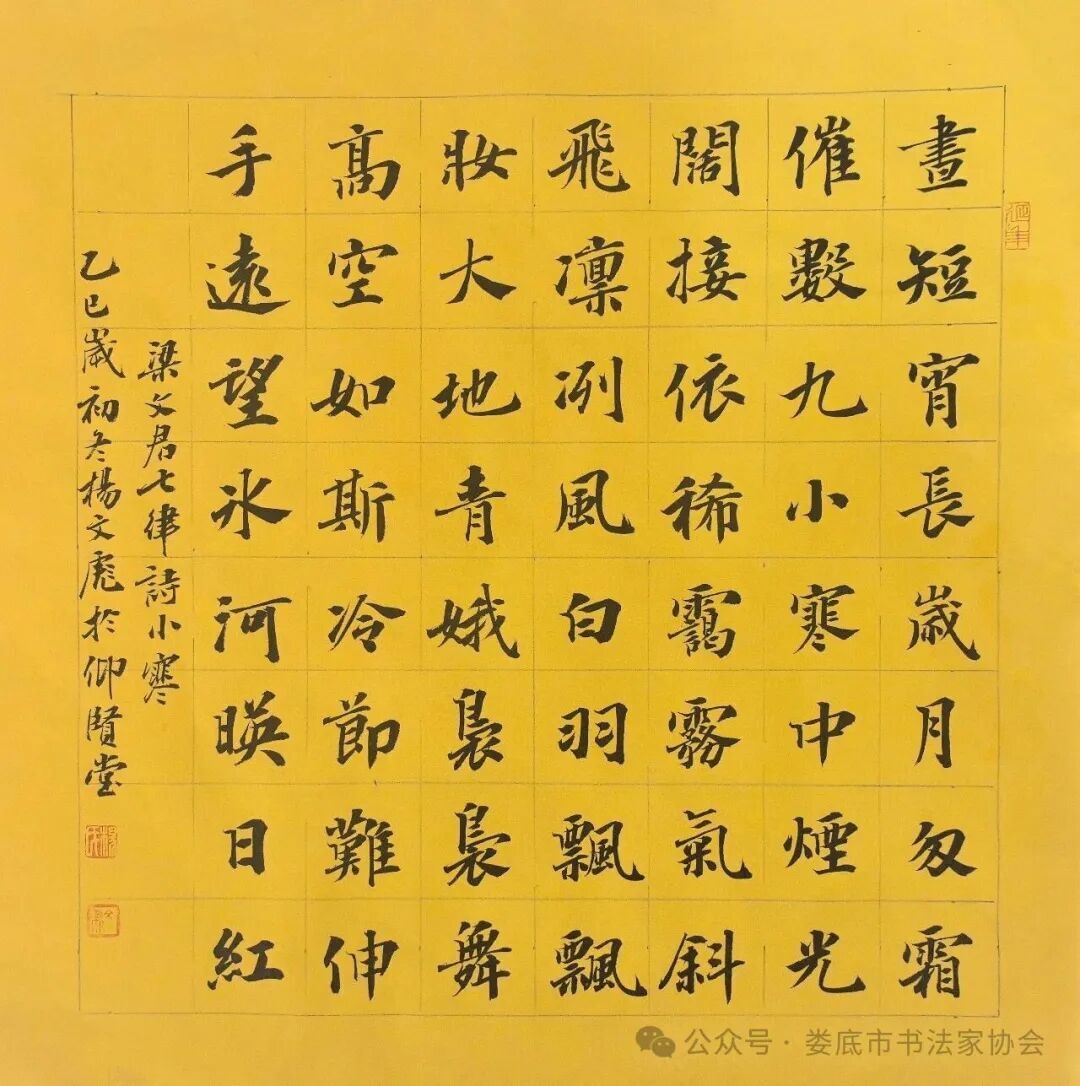 晝短宵長歲月匆霜
催數九小寒中煙光
闊接依稀靄霧氣斜
飛凜冽風白羽飄飄
妝大地青娥裊裊舞
高空如斯冷節難伸
手遠望冰河暎日紅
梁文君七律詩小寒
乙巳歲初冬楊文彪於仰賢堂
公众号·娄底市书法家协会